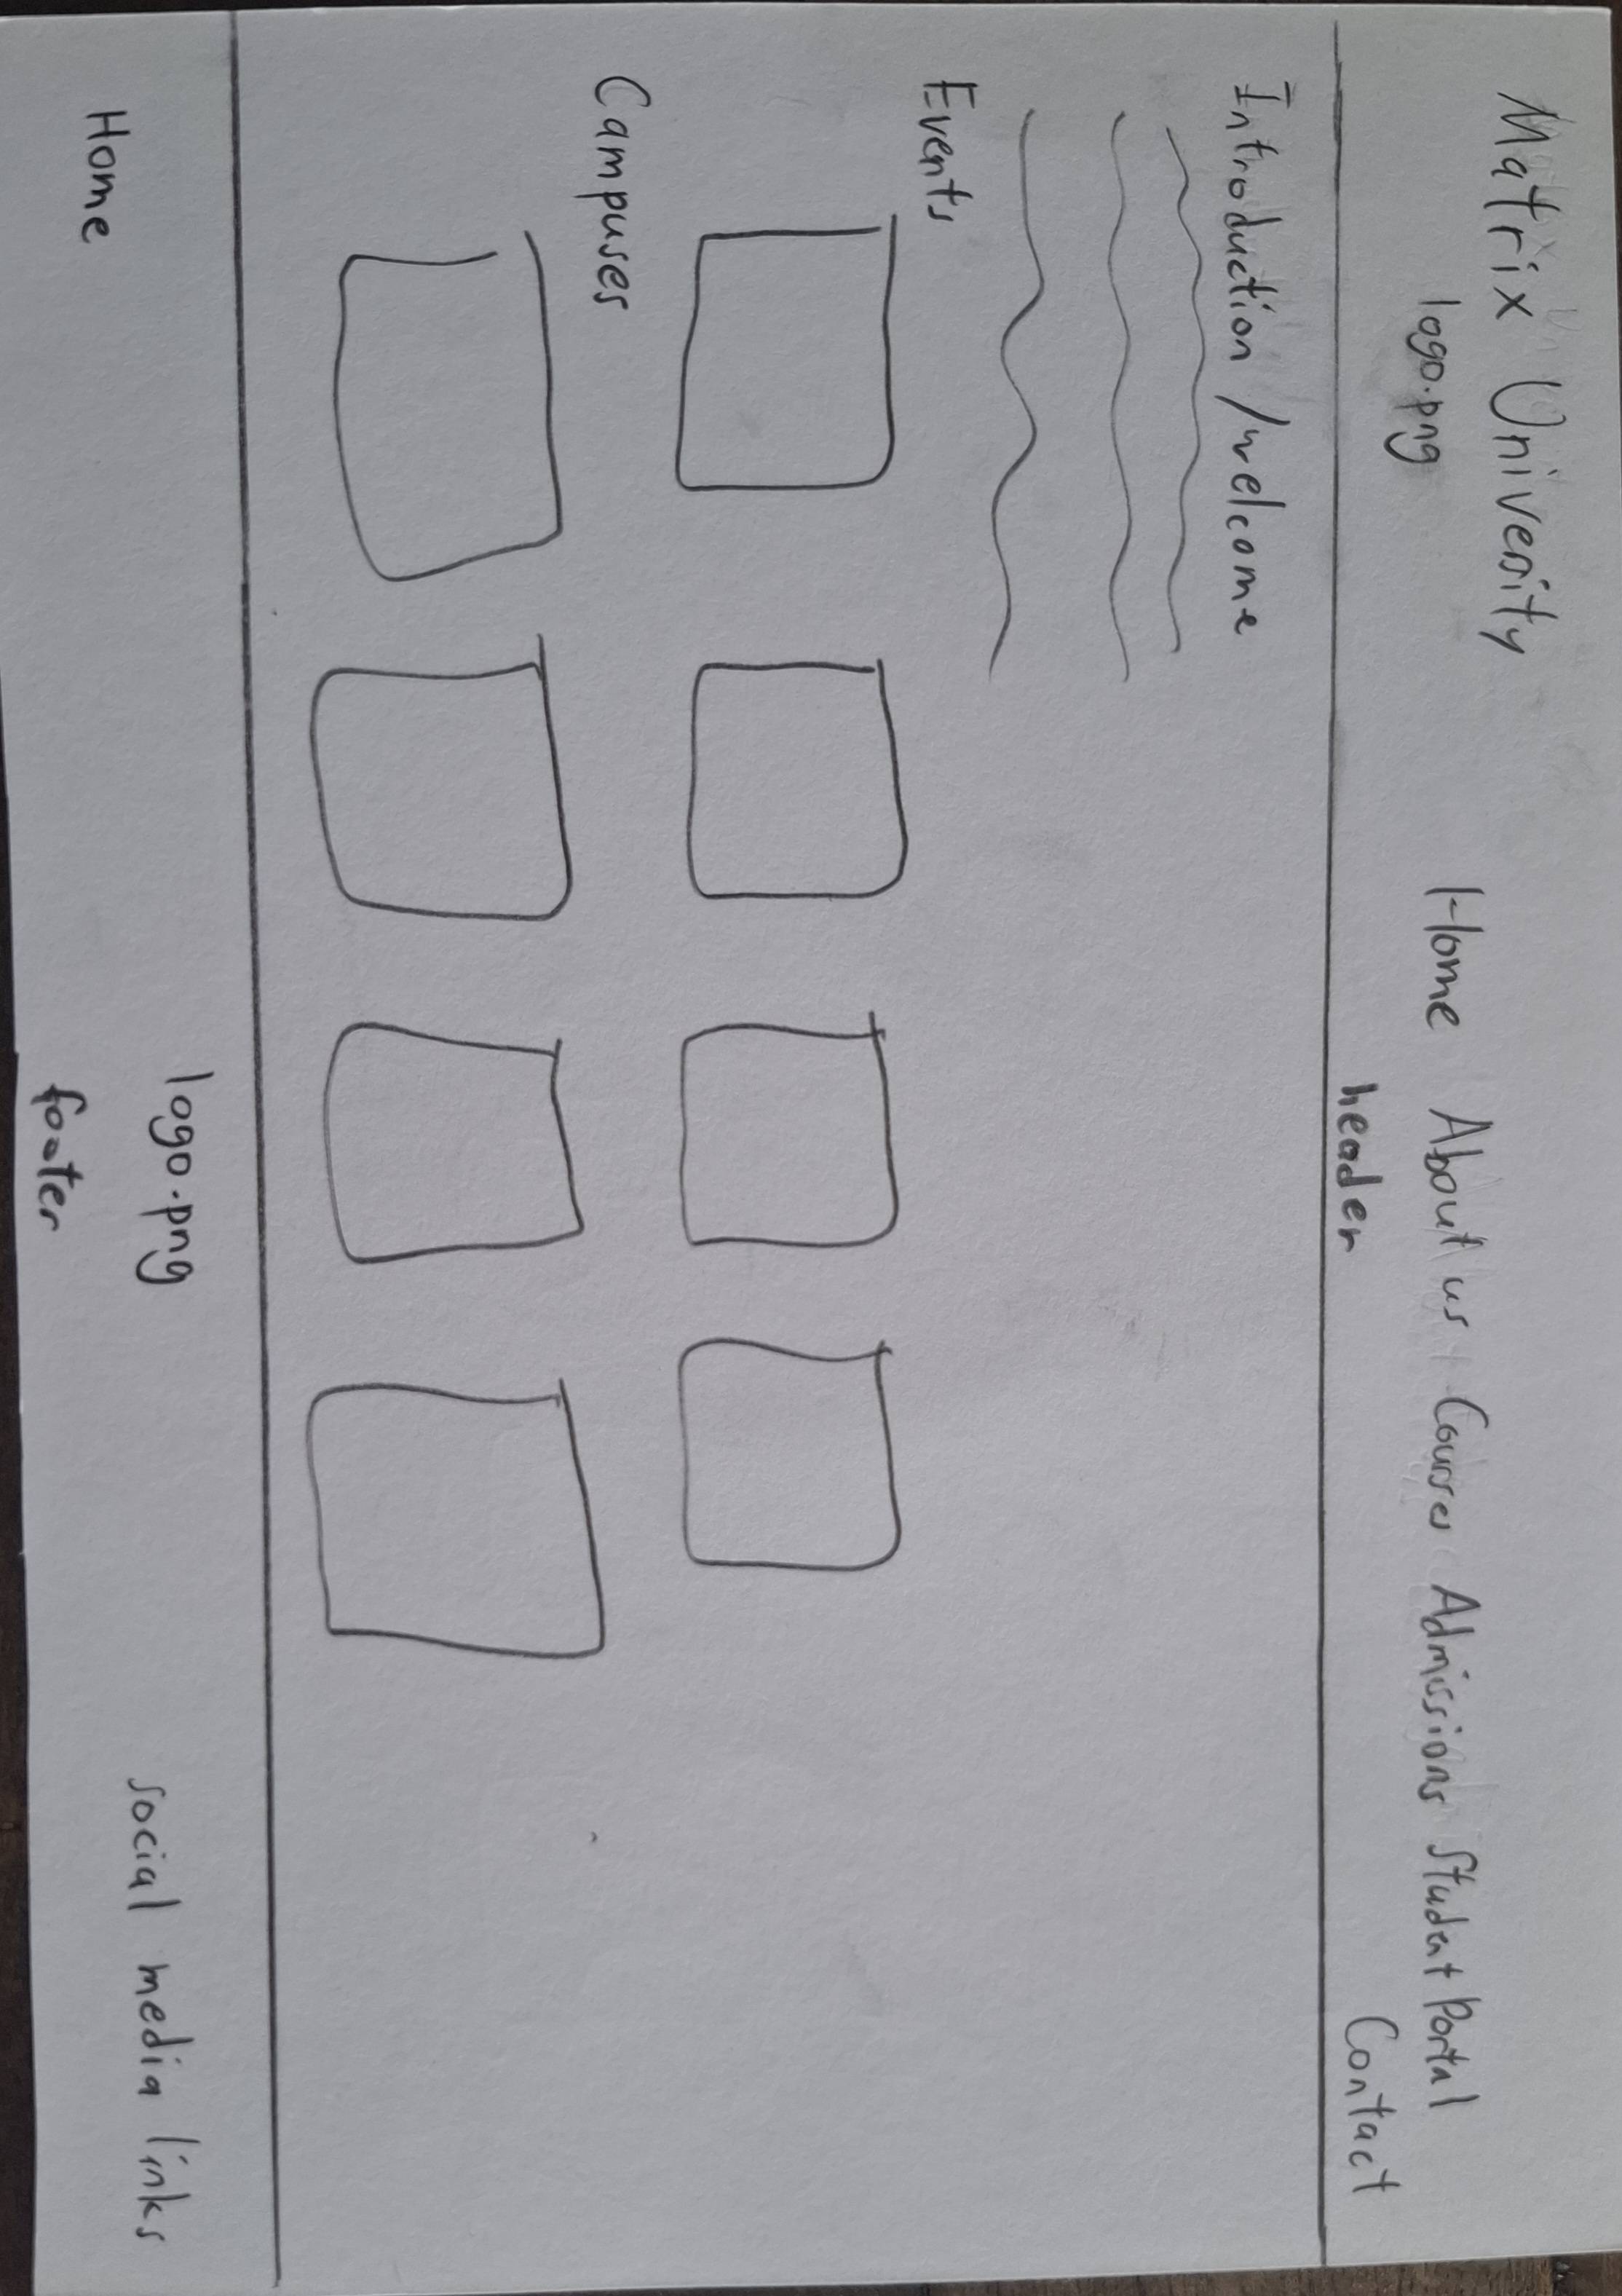 Matrix University
logo.png
Home About us Courses Admissions Student Portal
Contact
header
Introduction / welcome
Events
Campuses
logo.png
social media links
Home
footer